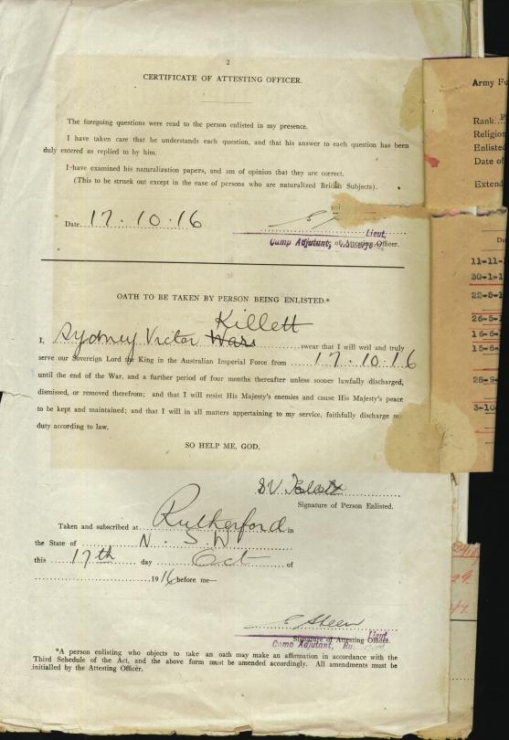 2
CERTIFICATE OF ATTESTING OFFICER.
The foregoing questions were read to the person enlisted in my presence.
I have taken care that he understands each question, and that his answer to each question has been
duly entered as replied to by him.
I have examined his naturalization papers, and am of opinion that they are correct.
(This to be struck out except in the case of persons who are naturalized British Subjects).
Date 17.10.16
Lieut.
Camp Adjutant, of Attesting Officer.
OATH TO BE TAKEN BY PERSON BEING ENLISTED.*
Killett
I, Sydney Victor swear that I will well and truly
serve our Sovereign Lord the King in the Australian Imperial Force from 17.10.16
until the end of the War, and a further period of four months thereafter unless sooner lawfully discharged,
dismissed, or removed therefrom; and that I will resist His Majesty's enemies and cause His Majesty's peace
to be kept and maintained; and that I will in all matters appertaining to my service, faithfully discharge my
duty according to law.
SO HELP ME, GOD.
S V
Signature of Person Enlisted.
Taken and subscribed at Rutherford in
the State of N.S.W
this 17th day Oct of
1916 before me—
Lieut.
Signature of Attesting Officer.
Camp Adjutant,
*A person enlisting who objects to take an oath may make an affirmation in accordance with the
Third Schedule of the Act, and the above form must be amended accordingly. All amendments must be
initialled by the Attesting Officer.
Army Fo
Rank
Religio
Enliste
Date of
Extend
Da
11-11-
30-1-1
22-8-1
26-5-1
16-6-
15-6-
28-2-
3-10-